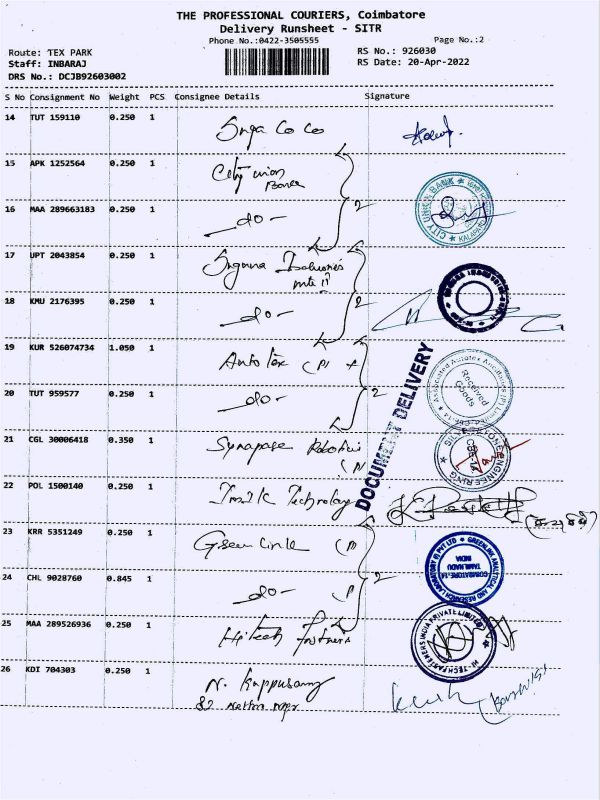 THE PROFESSIONAL COURIERS, Coimbatore
Delivery Runsheet - SITR
Phone No.:0422-3505555 Page No.:2
Route: TEX PARK RS No.: 926030
Staff: INBARAJ RS Date: 20-Apr-2022
DRS No.: DCJB92603002
S No Consignment No Weight PCS Consignee Details Signature
14 TUT 159110 0.250 1
15 APK 1252564 0.250 1 City union
CITY UNION BANK
16 MAA 289663183 0.250 1 - do - 2
17 UPT 2043854 0.250 1
18 KMU 2176395 0.250 1 - do - 2
19 KUR 526074734 1.050 1 Autotex (P)
Associated Autotex Ancillaries (P) Limited
Received Goods
20 TUT 959577 0.250 1 - do - 2
DOCUMENT DELIVERY
21 CGL 30006418 0.350 1 Synapase Robotics
CBE-14
ENGINEERING
22 POL 1500140 0.250 1 Technology
23 KRR 5351249 0.250 1 Green Link (P)
GREENLINK ANALYTICAL AND RESEARCH LABORATORY (I) PVT LTD
COIMBATORE-14
TAMILNADU
INDIA
24 CHL 9028760 0.845 1 - do - 2
25 MAA 289526936 0.250 1 Hitech Fastners
HI-TECH FASTENERS INDIA PRIVATE LIMITED
26 KDI 704303 0.250 1 N. Kuppusamy
82